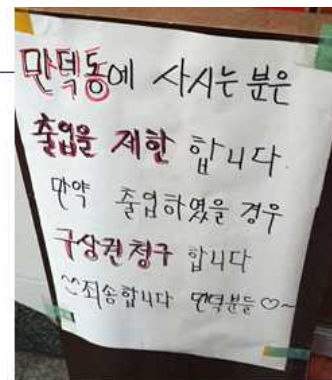 만덕동에 사시는 분은
출입을 제한 합니다.
만약 출입하였을 경우
구상권 청구 합니다
^^죄송합니다 만덕분들♡~